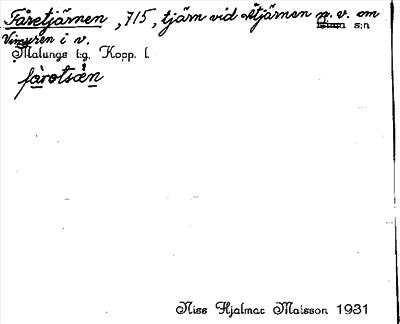 Fåretjärnen, 715, tjärn vid Åtjärnen n. v. om
Vimyren i v. s:n
Malungs t:g. Kopp. l.
fàrotsæn
Niss Hjalmar Matsson 1931